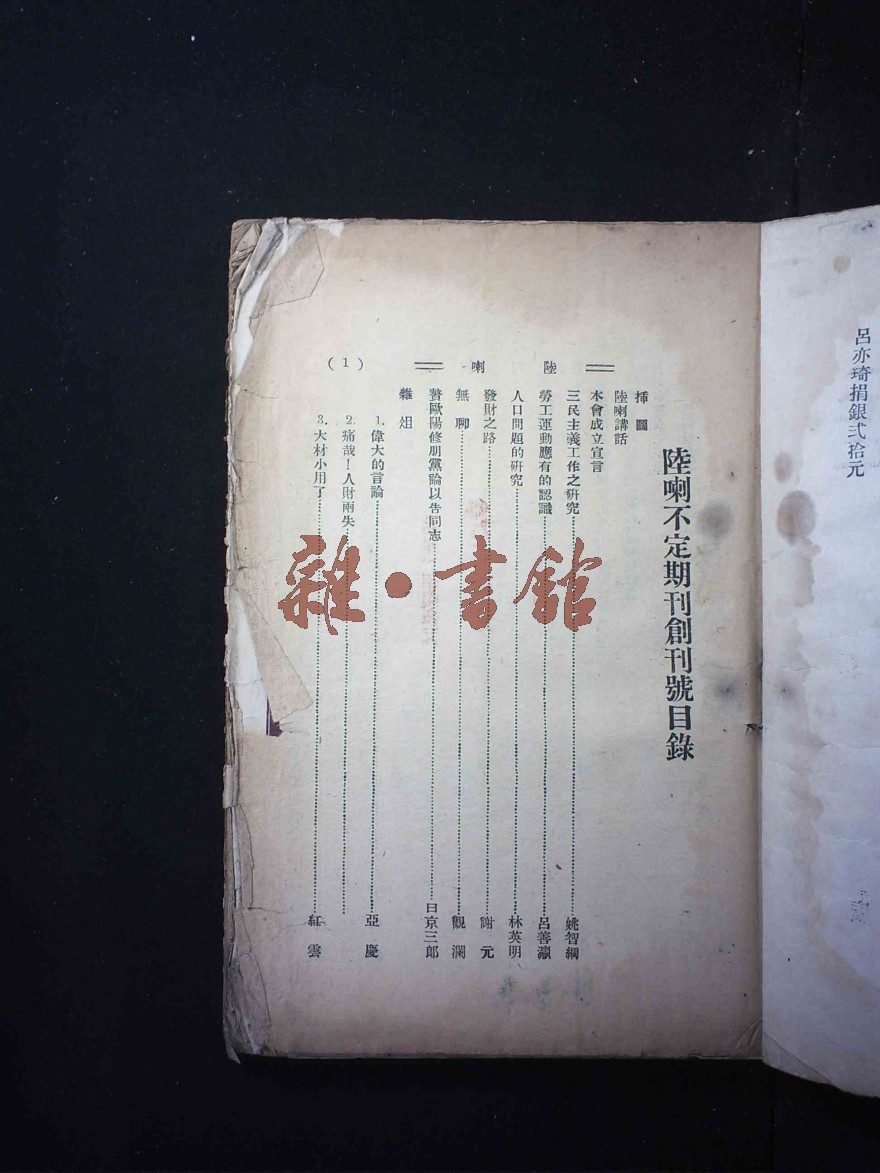 呂亦琦捐銀弍拾元
陸喇不定期刊創刊號目錄
插圖
陸喇講話
本會成立宣言
三民主義工作之研究 姚智綱
勞工運動應有的認識 呂善瀛
人口問題的研究 林英明
發財之路 謝元
無聊 觀瀾
讀歐陽修朋黨論以告同志 日京三郎
雜俎
1. 偉大的言論 亞慶
2. 痛哉！人財兩失
3. 大材小用了 紅雲
陸喇
(1)
雜·書館